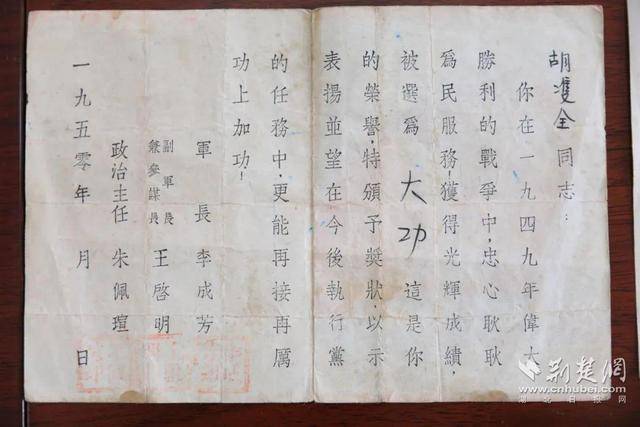 胡全同志：
你在一九四九年偉大
勝利的戰爭中，忠心耿耿
爲民服務！獲得光輝成績，
被選爲 大功 這是你
的榮譽，特頒予獎狀，以示
表揚並望在今後執行黨
的任務中，更能再接再厲
功上加功！
軍長 李成芳
副軍長
兼參謀長 王啓明
政治主任 朱佩瑄
一九五零年 月 日
荆楚網
www.cnhubei.com
湖北日报网